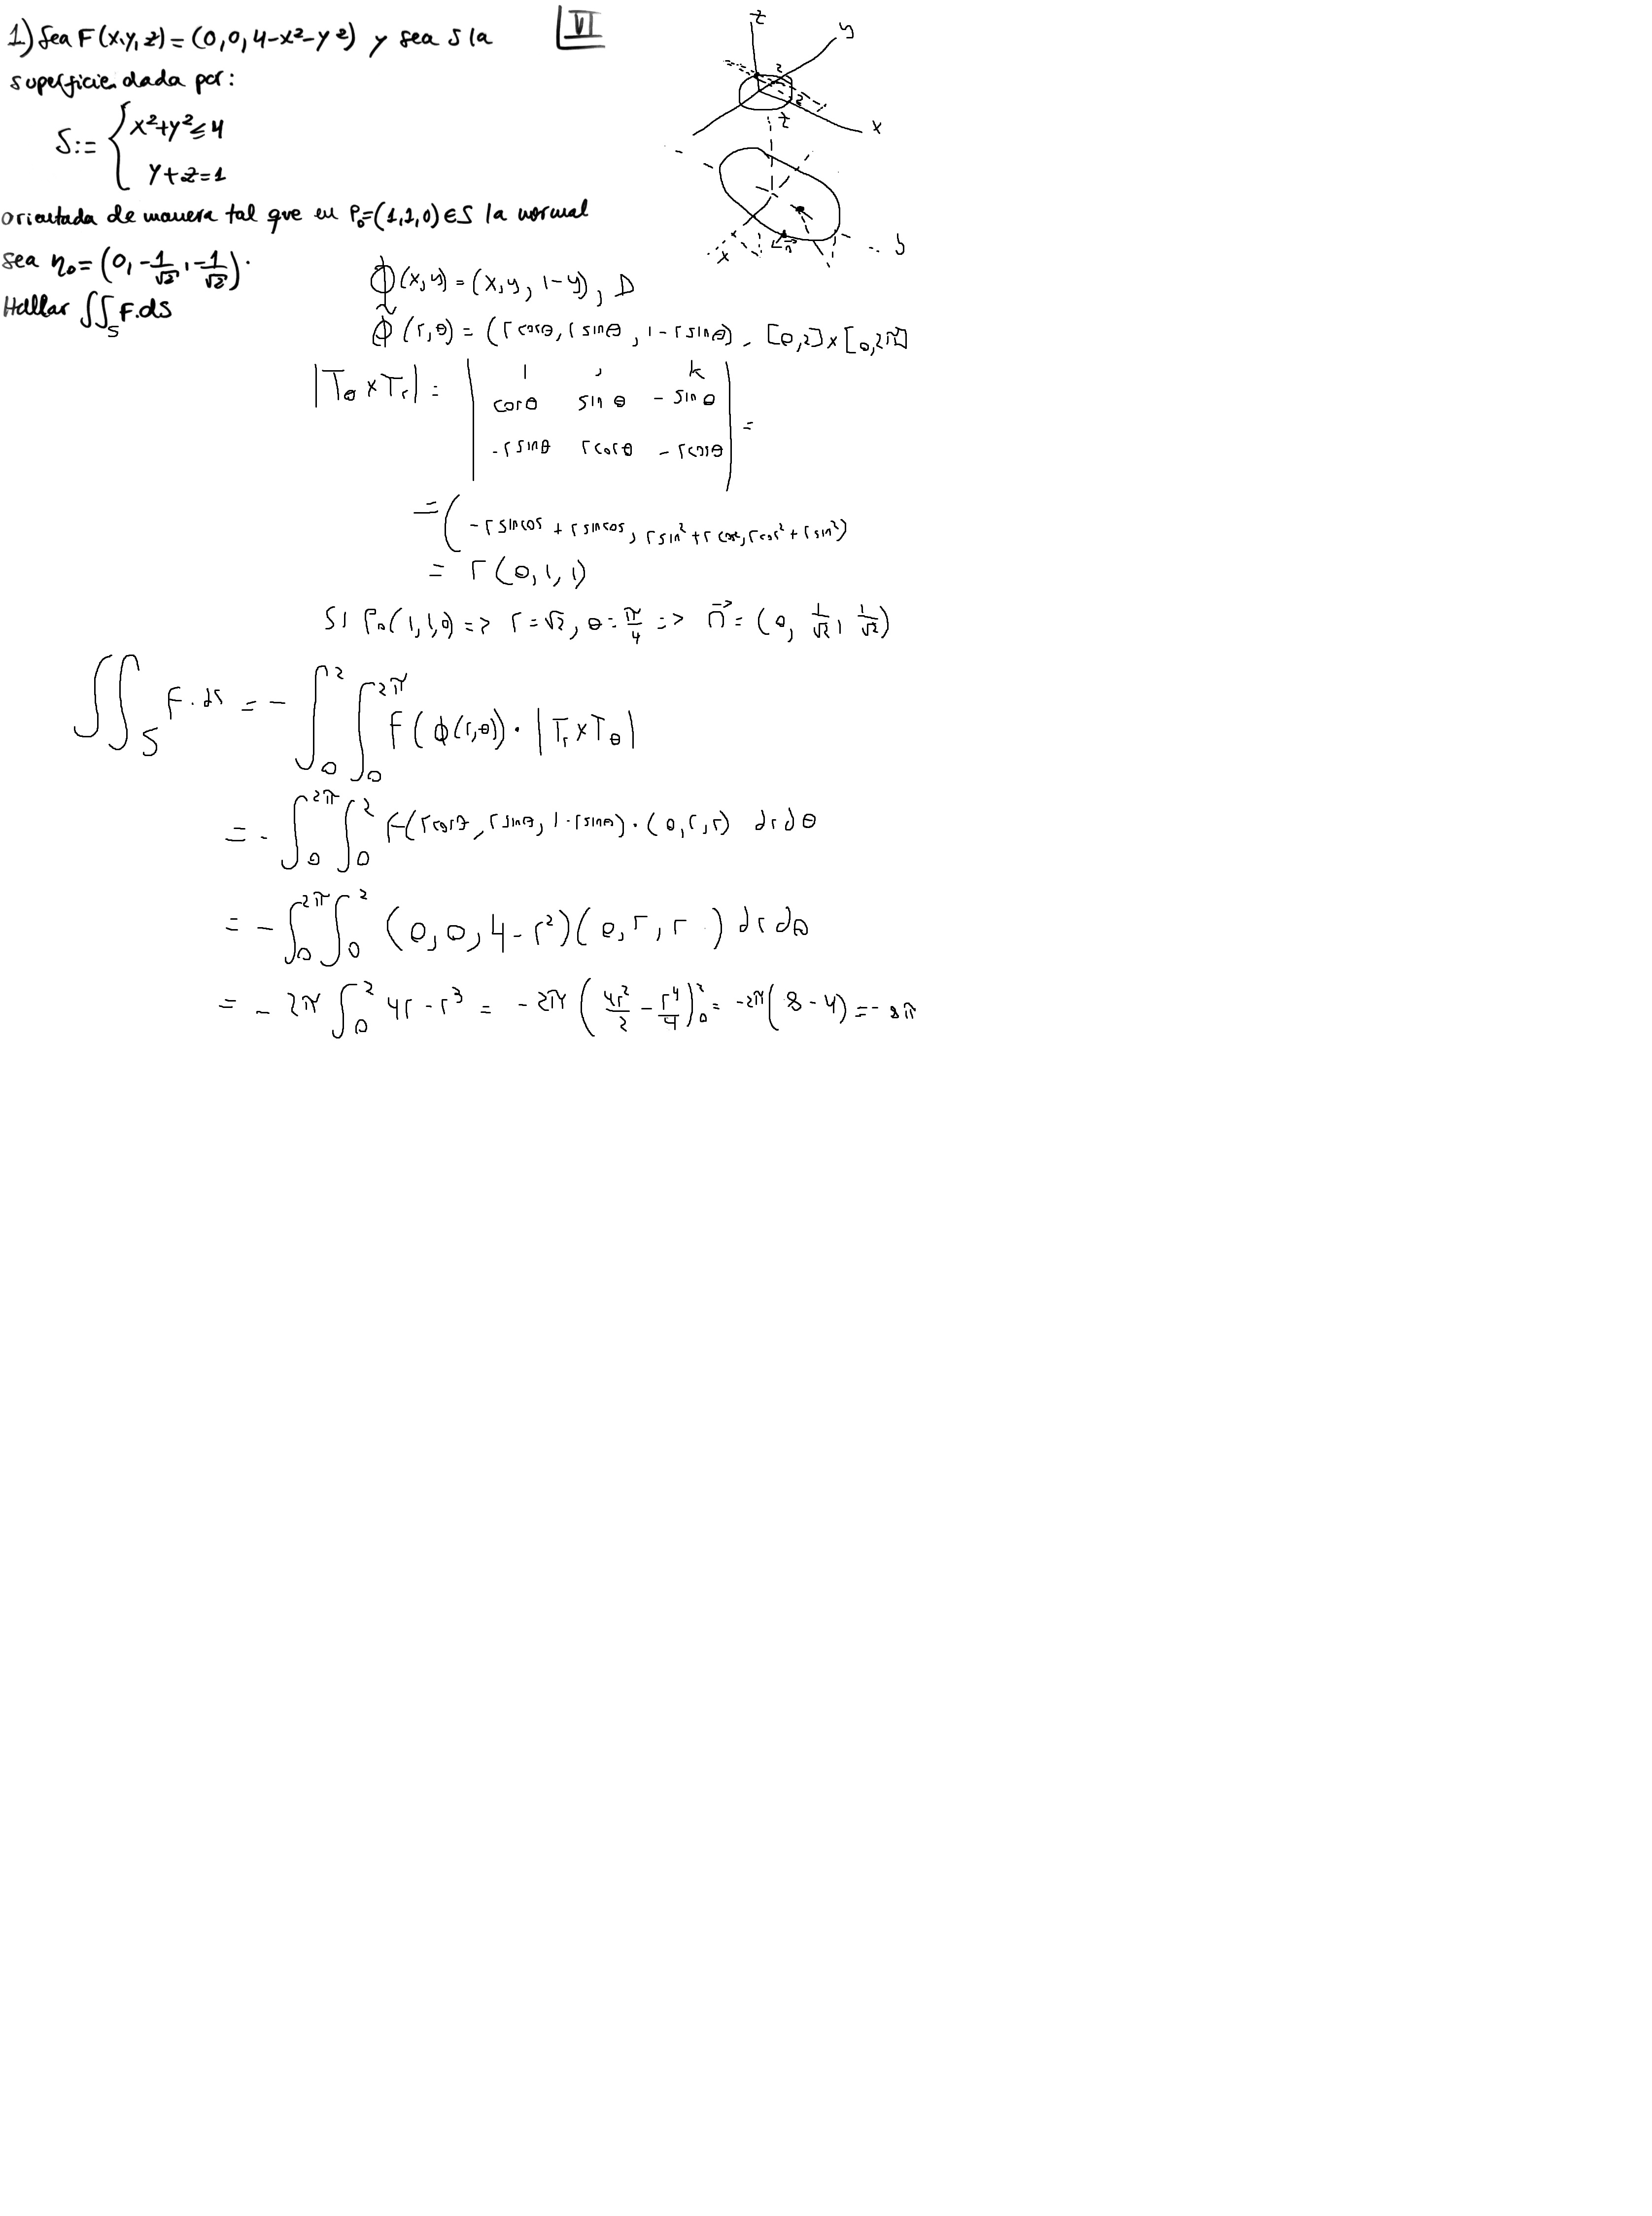 1) Sea F(x,y,z)=(0,0,4-x²-y²) y sea S la
VI
superficie dada por:
S:= { x²+y²≤4
y+z=1
orientada de manera tal que en P₀=(1,1,0)∈S la normal
sea η₀=(0,-1/√2,-1/√2).
Hallar ∬_S F.dS
z
y
2
2
x
z
x
n⃗
y
ϕ(x,y) = (x,y,1-y), D
ϕ̃(r,θ) = (r cosθ, r sinθ, 1-r sinθ), [0,2]x[0,2π]
|Tθ x Tr| = | i j k
cosθ sinθ -sinθ
-r sinθ r cosθ -r cosθ | =
= (-r sin cos + r sin cos, r sin² + r cos², r cos² + r sin²)
= r(0,1,1)
Si P₀(1,1,0) => r=√2, θ=π/4 => n⃗ = (0, 1/√2, 1/√2)
∬_S F.ds = -∫₀² ∫₀^2π F(ϕ(r,θ)) · |Tr x Tθ|
= -∫₀^2π ∫₀² F(r cosθ, r sinθ, 1-r sinθ)·(0,r,r) dr dθ
= -∫₀^2π ∫₀² (0,0,4-r²)(0,r,r) dr dθ
= -2π ∫₀² 4r-r³ = -2π (4r²/2 - r⁴/4)₀² = -2π(8-4) = -8π